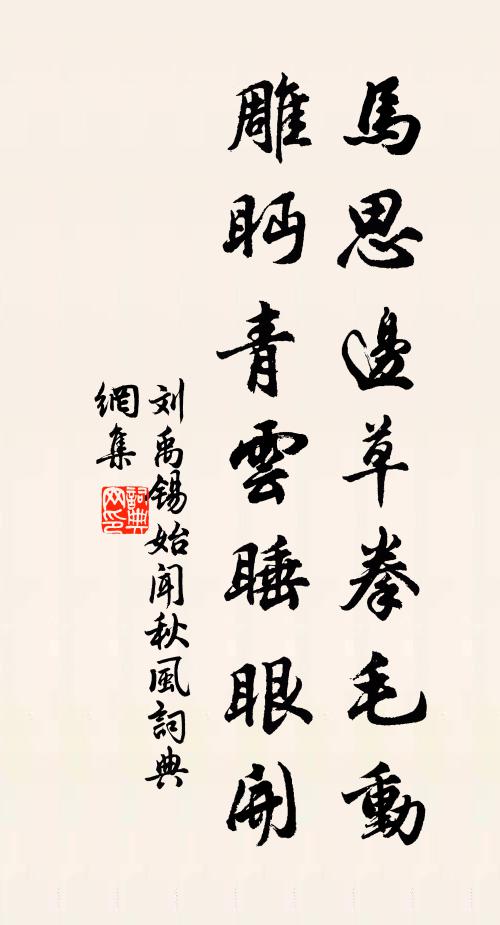 馬思邊草拳毛動
雕眄青雲睡眼開
刘禹锡始闻秋風詞典
網集
詞典
网印